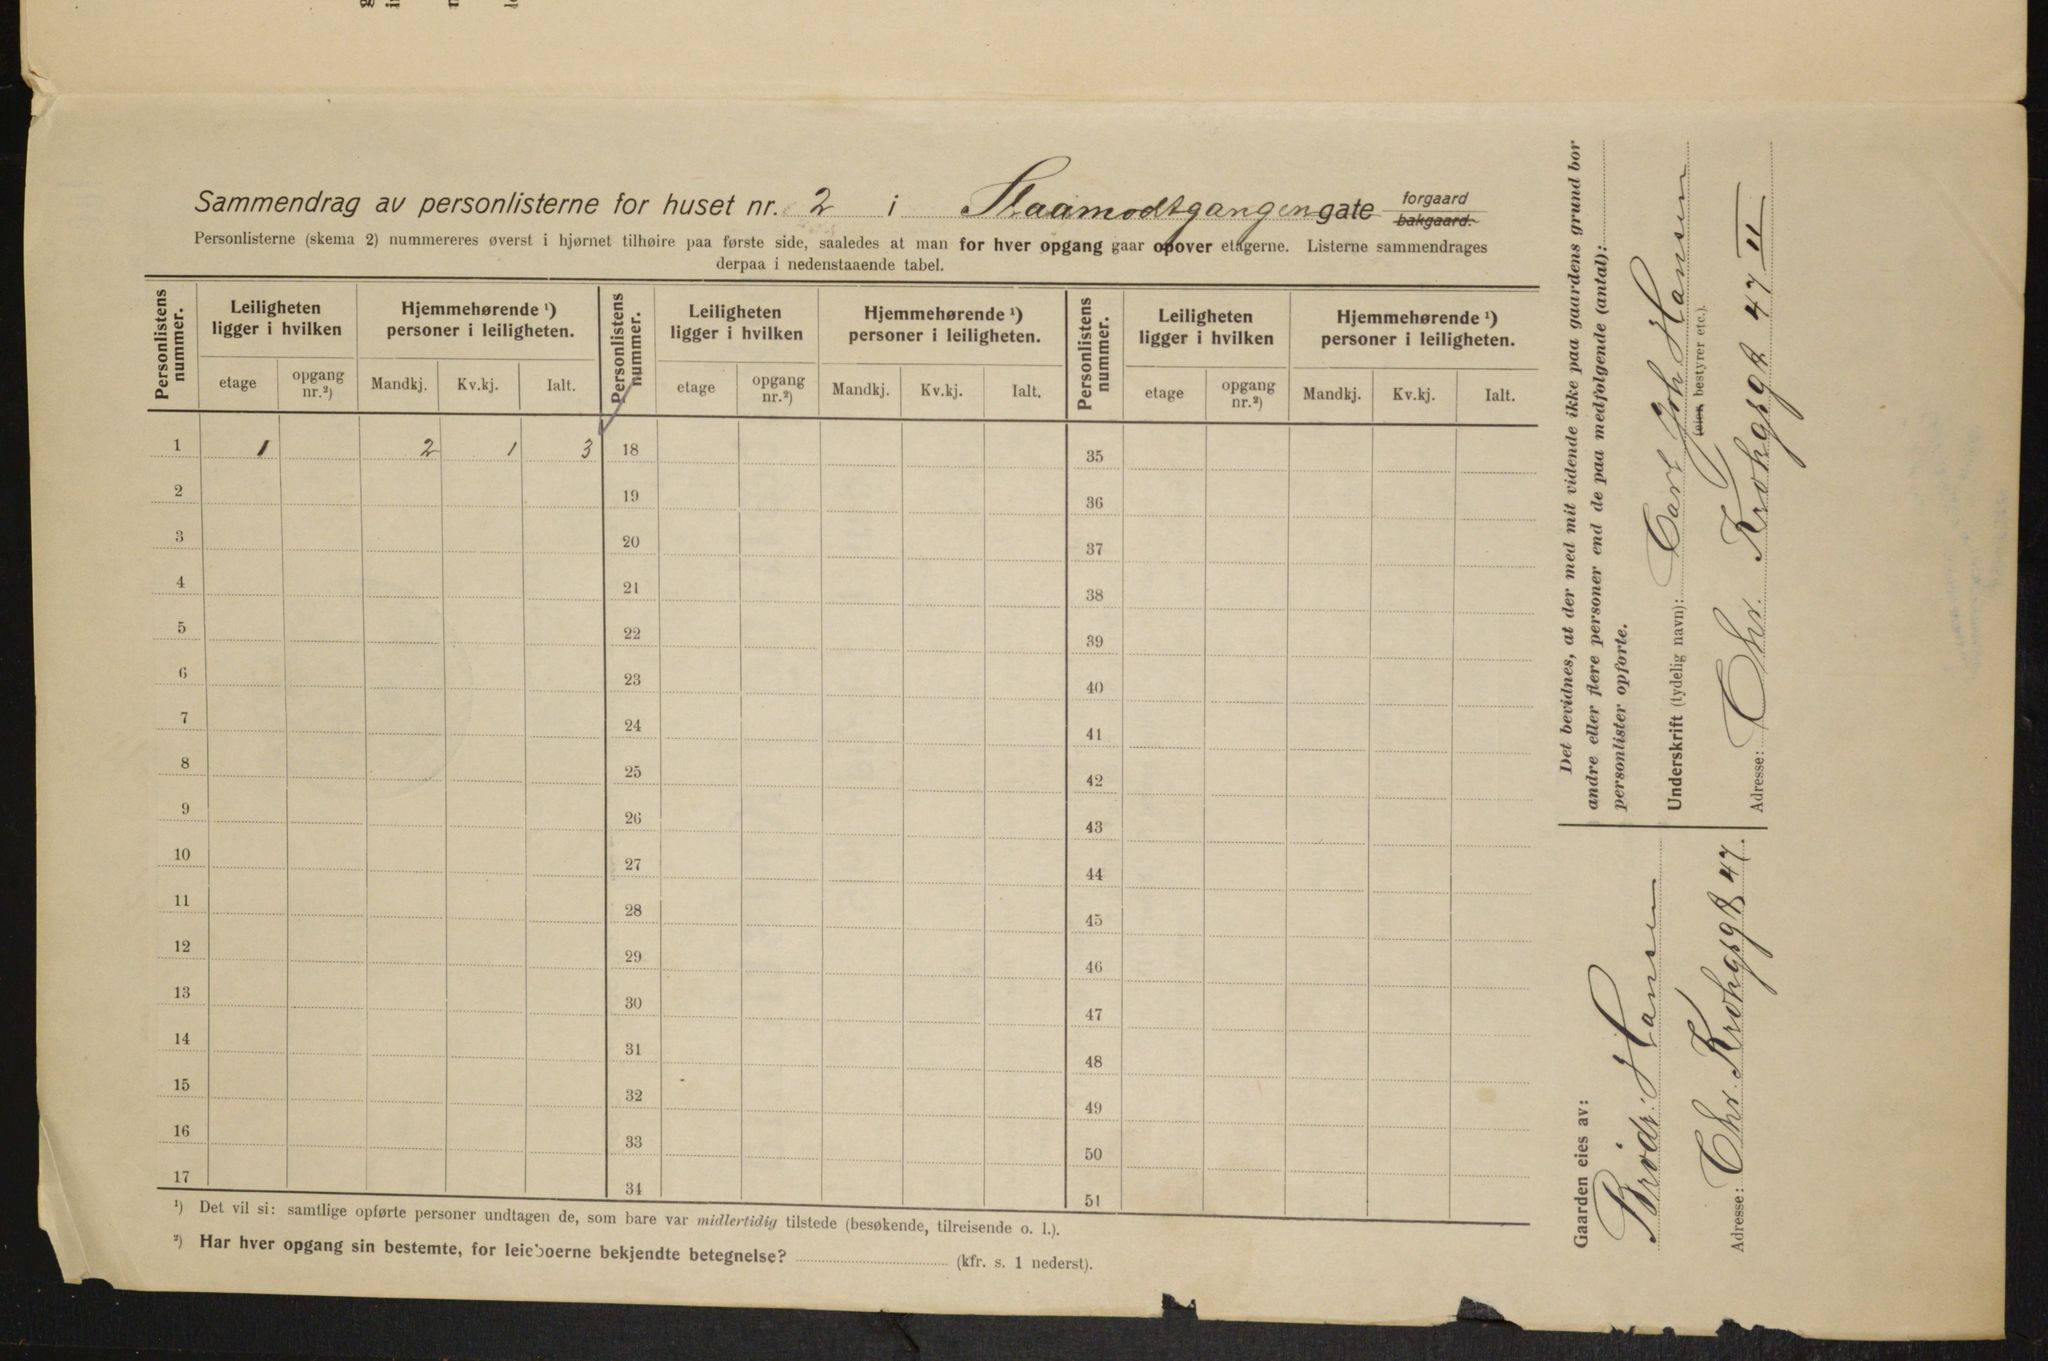 Sammendrag av personlisterne for huset nr. 2 i Slaamodtgangen gate forgaard
bakgaard.
Personlisterne (skema 2) nummereres øverst i hjørnet tilhøire paa første side, saaledes at man for hver opgang gaar opover etagerne. Listerne sammendrages
derpaa i nedenstaaende tabel.
Personlistens nummer. Leiligheten ligger i hvilken Hjemmehørende ¹) personer i leiligheten. Personlistens nummer. Leiligheten ligger i hvilken Hjemmehørende ¹) personer i leiligheten. Personlistens nummer. Leiligheten ligger i hvilken Hjemmehørende ¹) personer i leiligheten.
etage opgang nr.²) Mandkj. Kv.kj. Ialt. etage opgang nr.²) Mandkj. Kv.kj. Ialt. etage opgang nr.²) Mandkj. Kv.kj. Ialt.
1 1 2 1 3 18 35
2 19 36
3 20 37
4 21 38
5 22 39
6 23 40
7 24 41
8 25 42
9 26 43
10 27 44
11 28 45
12 29 46
13 30 47
14 31 48
15 32 49
16 33 50
17 34 51
¹) Det vil si: samtlige opførte personer undtagen de, som bare var midlertidig tilstede (besøkende, tilreisende o. l.).
²) Har hver opgang sin bestemte, for leieboerne bekjendte betegnelse? (kfr. s. 1 nederst).
Det bevidnes, at der med mit vidende ikke paa gaardens grund bor
andre eller flere personer end de paa medfølgende (antal):
personlister opførte.
Underskrift (tydelig navn): Carl Joh Hansen
(eier, bestyrer etc.).
Adresse: Chr. Krohgsgt 47 II
Gaarden eies av:
Brødr. Hansen
Adresse: Chr. Krohgsgt 47.